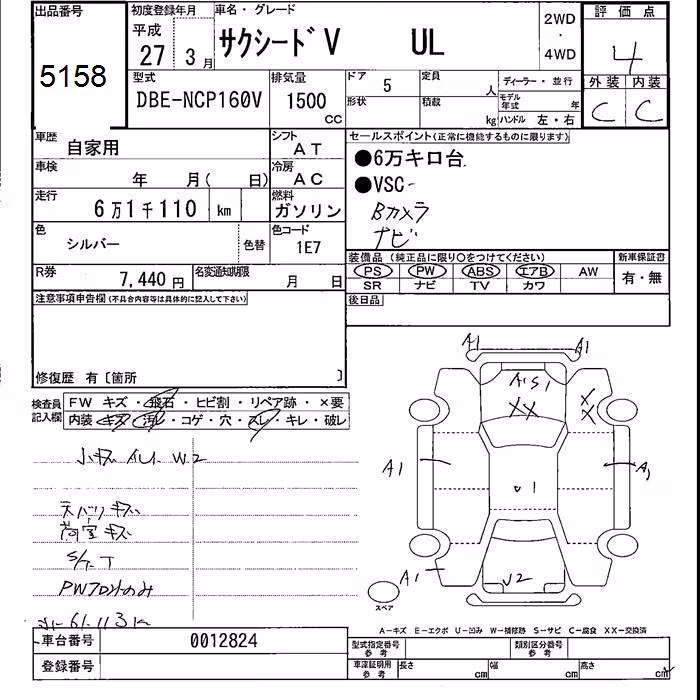 出品番号
5158
初度登録年月
平成
27 3月
車名・グレード
サクシードV UL
2WD
・
4WD
評価点
4
外装 内装
C C
型式
DBE-NCP160V
排気量
1500
CC
ドア 5
形状
定員 人
積載 kg
ディーラー・並行
モデル年式 年
ハンドル 左・右
車歴 自家用
シフト AT
車検 年 月( 日)
冷房 AC
走行 6万1千110 km
燃料 ガソリン
色 シルバー 色替
色コード 1E7
R券 7,440円
名変通知期限 月 日
セールスポイント(正常に機能するものに限ります)
●6万キロ台
●VSC
Bカメラ
ナビ
装備品 (純正品に限り○をつけてください)
新車保証書
PS PW ABS エアB AW
SR ナビ TV カワ
有・無
後日品
注意事項申告欄(不具合内容等は具体的に記入して下さい)
修復歴 有〔箇所 〕
検査員記入欄
FW キズ・飛石・ヒビ割・リペア跡・×要
内装・キズ・汚レ・コゲ・穴・スレ・キレ・破レ
小キズ イレ W2
天バリキズ
荷室キズ
S/T
A1 A1
A1 S1
XX
X
X
A1
A1
U1
A1
U2
スペア
A-キズ E-エクボ U-凹み W-補修跡 S-サビ C-腐食 XX-交換済
車台番号 0012824
登録番号
型式指定番号
参考
類別区分番号
参考
車庫証明用
参考
長さ cm 幅 cm 高さ cm